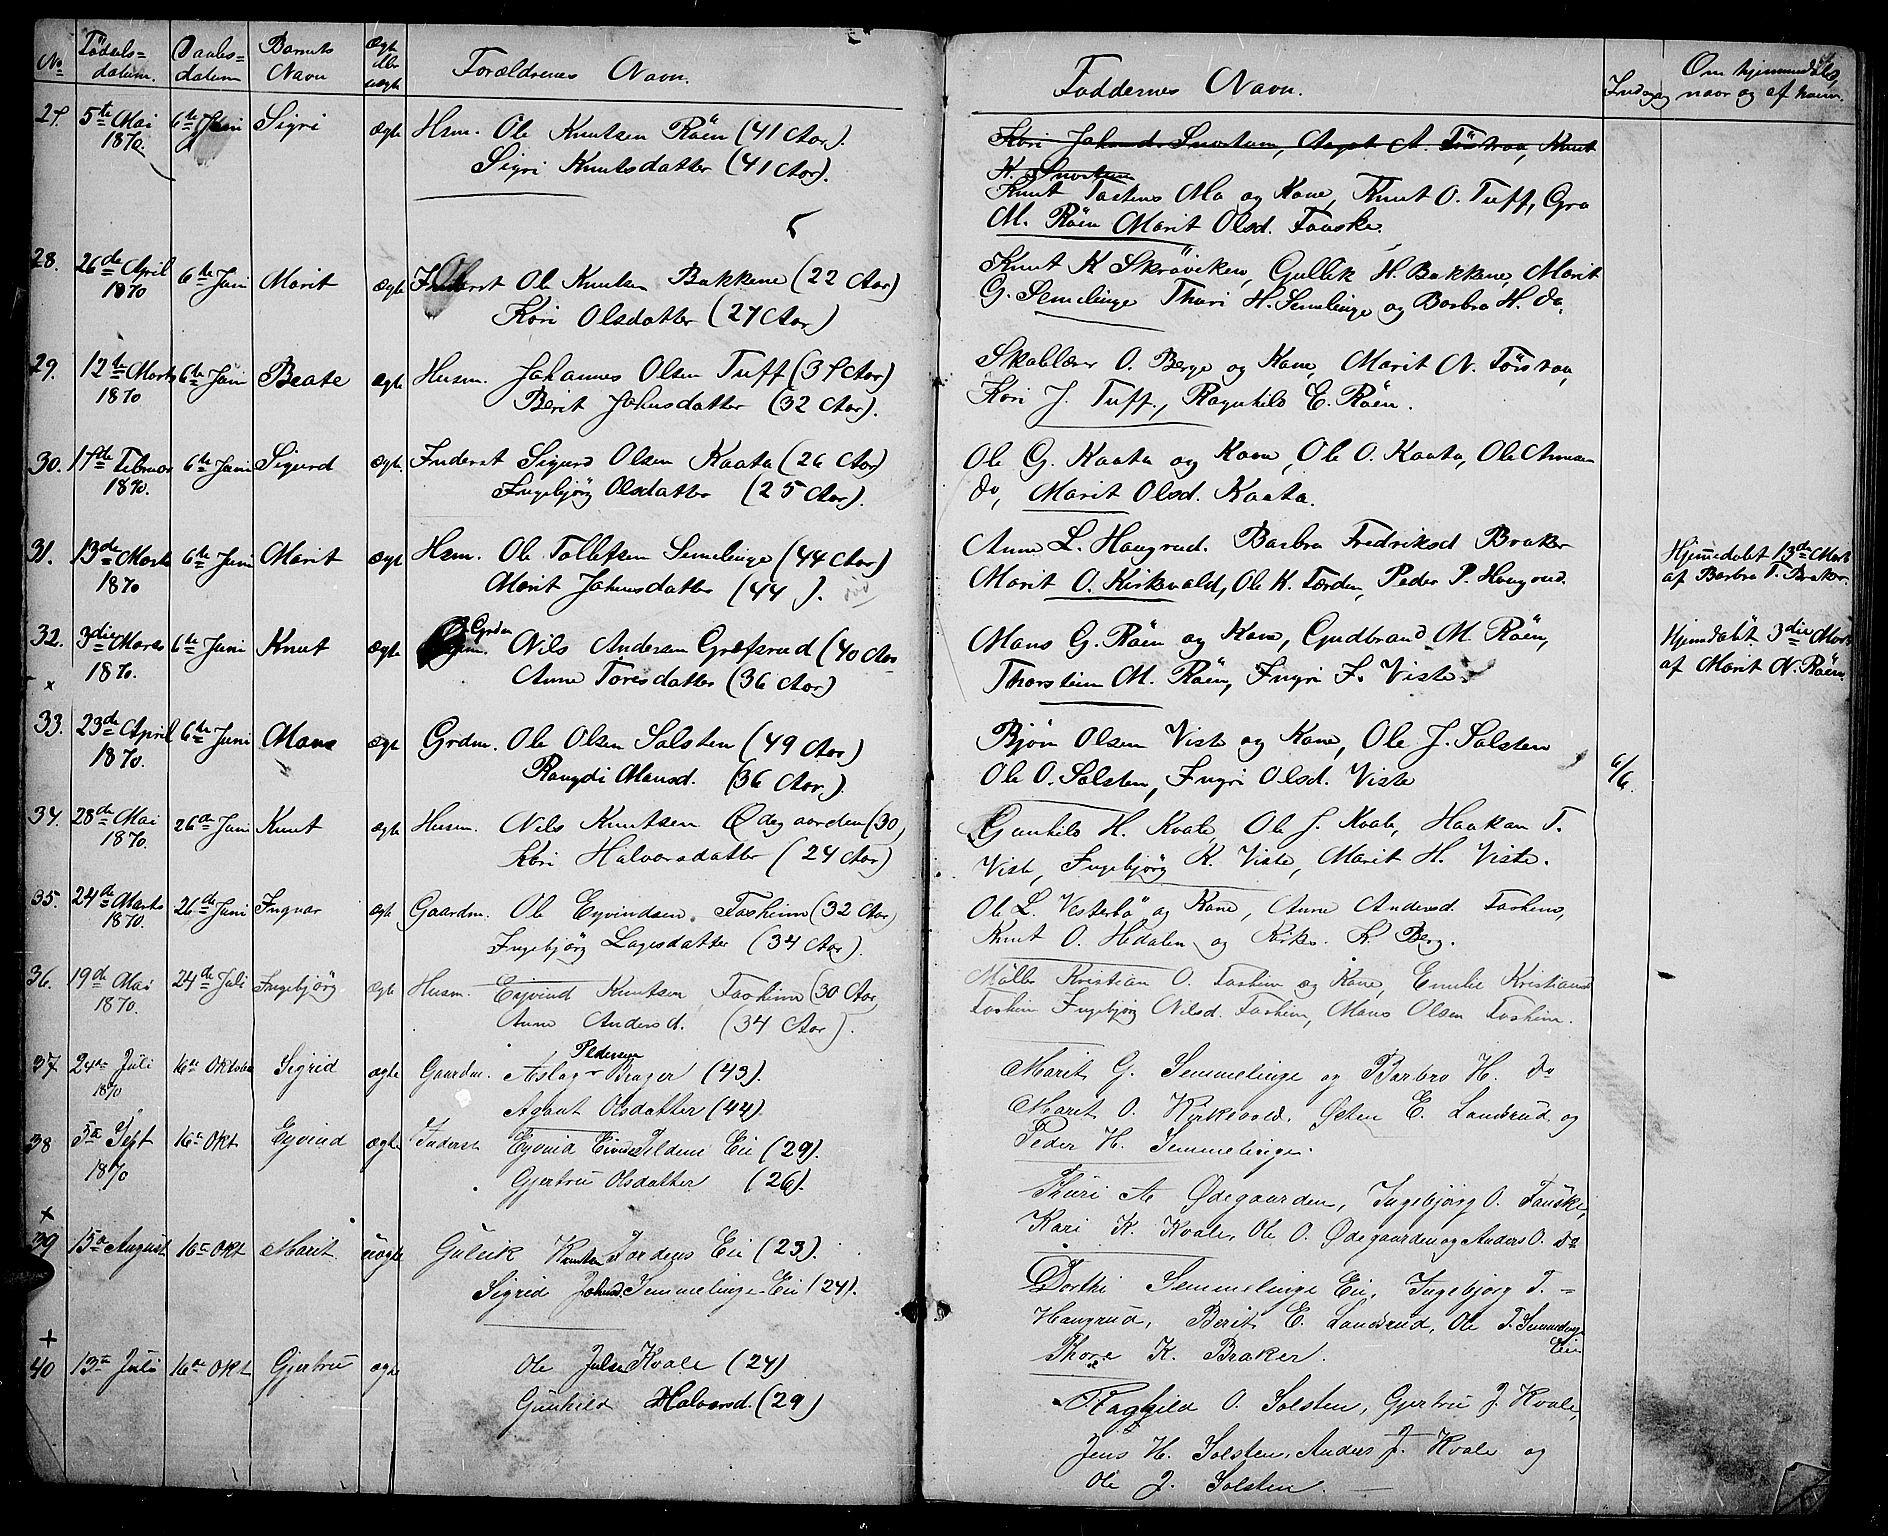 No Födsels= datum. Daabs= datum Barnets Navn Ægte eller uægte Forældrenes Navn. Faddernes Navn. Indgang Om hjemmedøbt, naar og af hvem.
27. 5te Mai 1870. 6te Juni Sigri ægte Hsm. Ole Knutsen Röen (41 Aar).
Sigri Knutsdatter (41 Aar).
Kari Johansd. Snortum, Aagot A. Törstaa, Knut
K. Snortum
Knut Tostens Mo og Kone, Knut O. Tuff, Gro
M. Röen Marit Olsd. Fauske.
28. 26de April 1870 6te Juni Marit ægte Inderst Ole Knutsen Bakkene (22 Aar)
Kari Olsdatter (27 Aar)
Knut K Skröviken, Gullik H. Bakkene, Marit
G. Semelinge Thuri H. Semelinge og Barbro H. do.
29. 12te Marts 1870 6te Juni Beate ægte Husm. Johannes Olsen Tuff (37 Aar)
Berit Johnsdatter (32 Aar).
Skolelærer O. Berge og Kone, Marit N. Törstaa,
Kari J. Tuff., Ragnhild E. Röen.
30. 17de Februar 1870. 6te Juni Sigurd ægte. Inderst Sigurd Olsen Kaata (26 Aar)
Ingebjörg Olsdatter (25 Aar).
Ole G. Kaata og Kone, Ole O. Kaata, Ole Arnesen
do, Marit Olsd. Kaata.
31. 13de Marts 1870 6te Juni Marit ægte Hsm. Ole Tollefsen Semelinge (44 Aar)
Marit Johnsdatter (44 ).
Anne L. Haugrud. Barbro Fredriksd Braker
Marit O. Kirkevald, Ole K. Torden, Peder P. Haugrud.
Hjemedøbt 13de Marts
af Barbro F. Braker.
32. 3die Marts 1870. 6te Juni Knut ægte Grdm. Nils Andersen Græfsrud (40 Aar
Anne Toresdatter (36 Aar)
Mans G. Röen og Kone, Gudbrand M. Röen,
Thorstein M. Röen, Ingri I. Viste.
Hjemdøbt 3die Marts
af Marit N. Röen.
x
33. 23de April 1870. 6te Juni Mans ægte Grdm. Ole Olsen Solsten (49 Aar)
Rangdi Mansd. (36 Aar.)
Bjön Olsen Viste og Kone, Ole J. Solsten
Ole O. Solsten, Ingri Olsd. Viste
6/6.
34. 28de Mai 1870. 26de Juni Knut ægte Husm. Nils Knutsen Ødegaarden (30,
Kari Halvorsdatter (24 Aar)
Gunhild H. Kvale, Ole J. Kvale, Haakon T.
Viste, Ingebjörg K. Viste, Marit H. Viste.
35. 24de Marts 1870. 26de Juni Ingvar ægte Gaardm. Ole Eyvindsen Tosheim (32 Aar)
Ingebjörg Lagesdatter (34 Aar).
Ole L. Vesterbö og Kone, Anne Andersd. Toshem,
Knut O. Hedalen og Kirks. K. Berg.
36. 19de Mai 1870. 24de Juli Ingebjörg ægte Husm. Eyvind Knutsen Tosheim (30 Aar,
Anne Andersd. (34 Aar).
Möller Kristian O. Toshem og Kone, Emilie Kristiansd
Toshem Ingebjörg Nilsd. Toshem, Mans Olsen Toshem.
37. 24de Juli 1870 16de Oktober Sigrid ægte Gaardm. Aslag Pedersen Brager (43).
Agaat Olsdatter (44).
Marit G. Semmelinge og Barbro H. do
Marit O. Kirkevold, Østen E. Landsrud og
Peder H. Semmelinge.
38 5te Sept 1870 16de Okt Eyvind ægte Inderst Eyvind Eivindsen Tildens Eie (29).
Gjertru Olsdatter (26).
Thuri A. Ødegaarden, Ingebjörg O. Fauske,
Kari K. Kvale, Ole O. Ødegaarden og Anders O. do
x
39 15de August 16de Okt Marit uægte Gulbik Knutsen Tordens Eie (23).
Sigrid Johnsd. Semmelinge Eie (24).
Dorthi Semmelinge Eie, Ingebjörg T. =
Haugrud, Berit E. Landsrud, Ole T. Semmelinge Eie
Thore K. Braker.
+
40 13de Juli 16de Okt Gjertru ægte Ole Julsen Kvale (24)
Gunhild Halvorsd. (29)
Raghild O. Solsten, Gjertru J. Kvale,
Jens H. Solsten, Anders J. Kvale og
Ole J. Solsten.